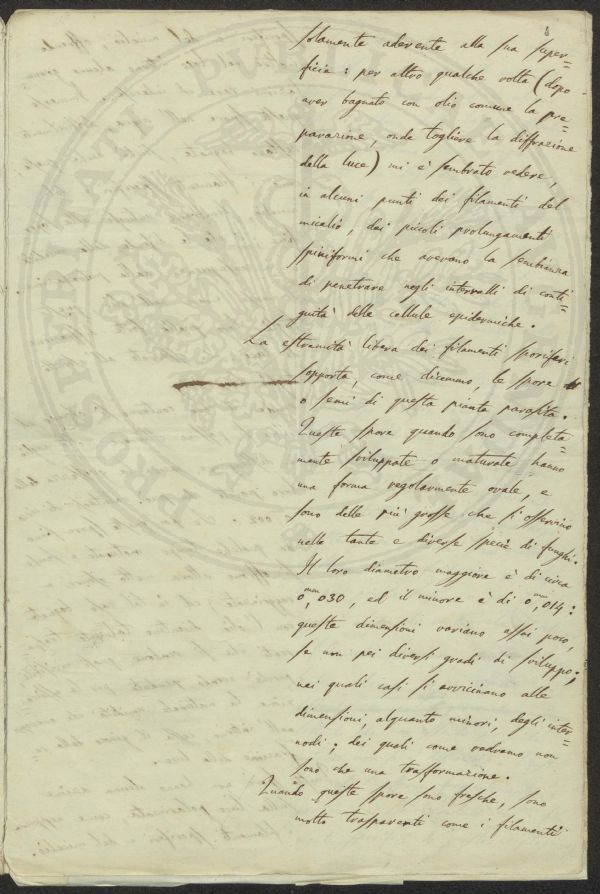 8
solamente aderente alla sua super=
ficia: per altro qualche volta (dopo
aver bagnato con olio comune la pre=
parazione, onde togliere la diffrazione
della luce) mi è sembrato vedere,
in alcuni punti dei filamenti del
micelio, dei piccoli prolungamenti
spiniformi che avevano la sembianza
di penetrare negli intervalli di conti=
guità delle cellule epidermiche.
La estremità libera dei filamenti sporiferi
sopporta, come dicemmo, le spore
o semi di questa pianta parasita.
Queste spore quando sono completa=
mente sviluppate o maturate hanno
una forma regolarmente ovale, e
sono delle più grosse che si osservino
nelle tante e diverse specie di funghi.
Il loro diametro maggiore è di circa
0,mm030, ed il minore è di 0,mm014:
queste dimensioni variano assai poco,
se non pei diversi gradi di sviluppo;
nei quali casi si avvicinano alle
dimensioni, alquanto minori, degli inter=
nodi; dei quali come vedremo non
sono che una trasformazione.
Quando queste spore sono fresche, sono
molto trasparenti come i filamenti